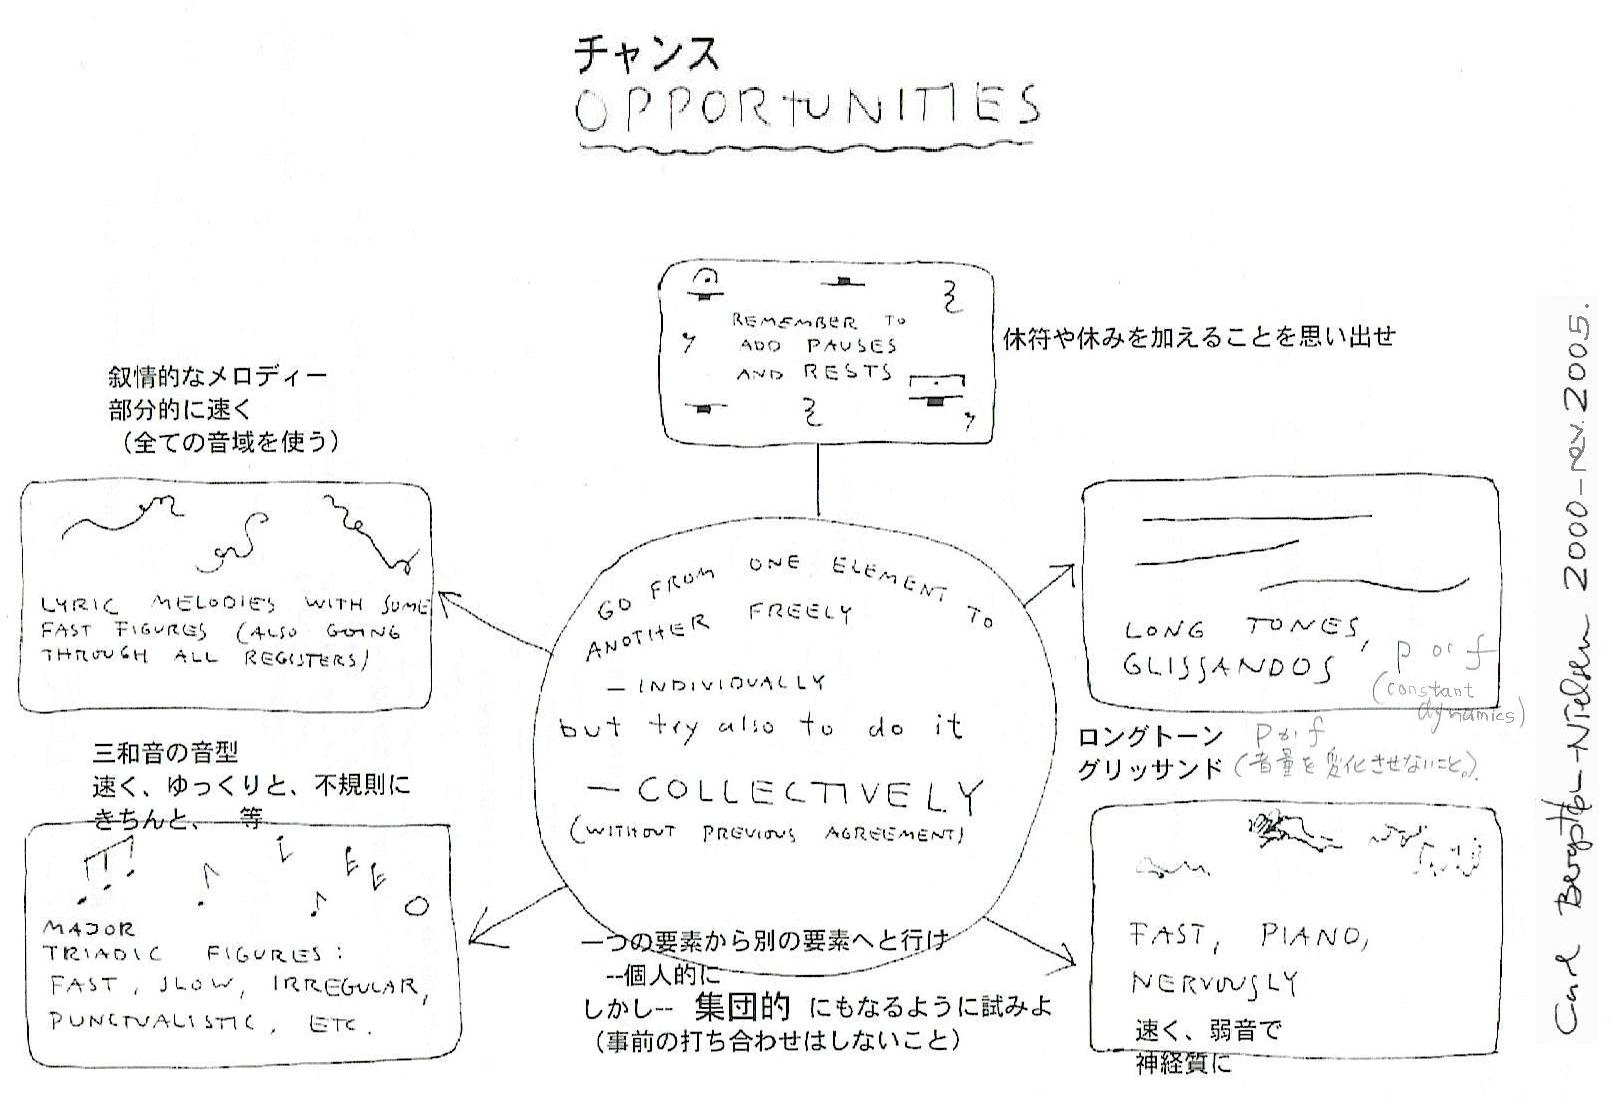 チャンス
OPPORTUNITIES
REMEMBER TO
ADD PAUSES
AND RESTS
休符や休みを加えることを思い出せ
叙情的なメロディー
部分的に速く
（全ての音域を使う）
LYRIC MELODIES WITH SOME
FAST FIGURES (ALSO GOING
THROUGH ALL REGISTERS)
GO FROM ONE ELEMENT TO
ANOTHER FREELY
— INDIVIDUALLY
but try also to do it
— COLLECTIVELY
(WITHOUT PREVIOUS AGREEMENT)
一つの要素から別の要素へと行け
--個人的に
しかし-- 集団的 にもなるように試みよ
（事前の打ち合わせはしないこと）
LONG TONES,
GLISSANDOS p or f
(constant
dynamics)
ロングトーン p か f
グリッサンド (音量を変化させないこと。)
三和音の音型
速く、ゆっくりと、不規則に
きちんと、 等
MAJOR
TRIADIC FIGURES:
FAST, SLOW, IRREGULAR,
PUNCTUALISTIC, ETC.
FAST, PIANO,
NERVOUSLY
速く、弱音で
神経質に
Carl Bergstrøm-Nielsen 2000-rev.2005.